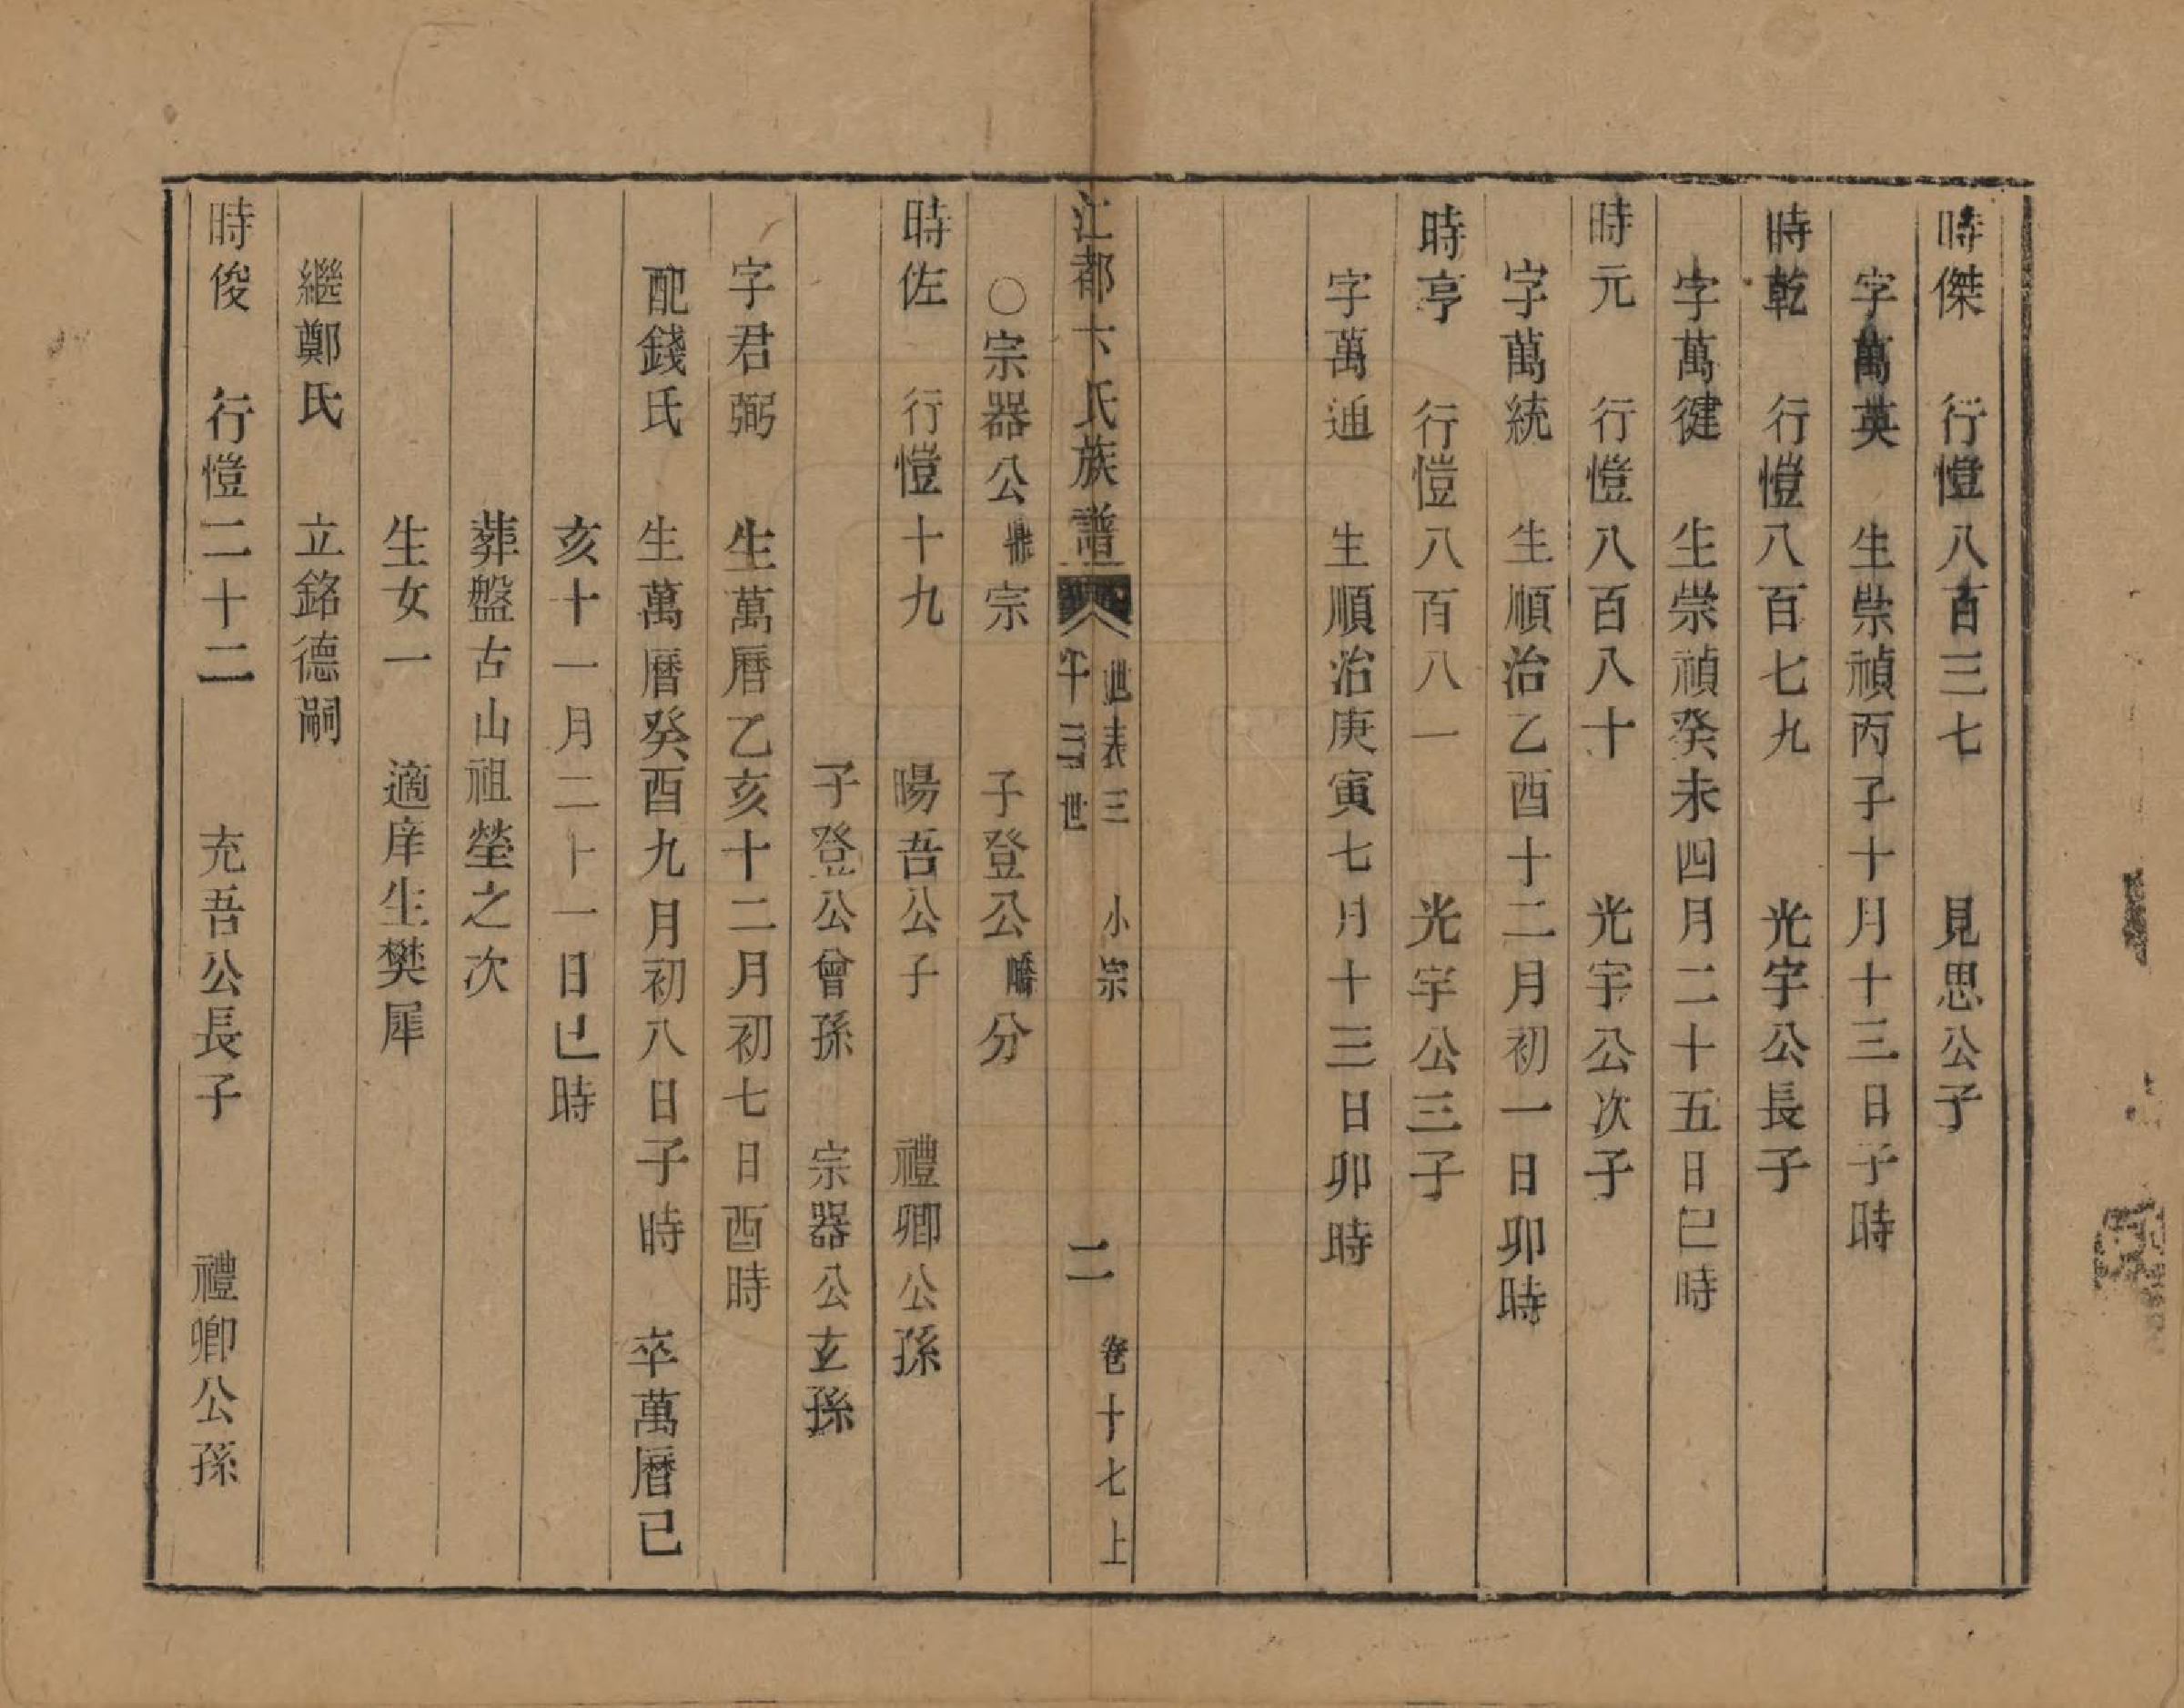 時傑　行愷八百三七　見思公子
字萬英　生崇禎丙子十月十三日子時
時乾　行愷八百七九　光宇公長子
字萬健　生崇禎癸未四月二十五日巳時
時元　行愷八百八十　光宇公次子
字萬統　生順治乙酉十二月初一日卯時
時亨　行愷八百八一　光宇公三子
字萬通　生順治庚寅七月十三日卯時
江都卞氏族譜　世表三　小宗　二　卷十七上
十三世
○宗器公鼎宗　子登公分
時佐　行愷十九　暘吾公子　禮卿公孫
子登公曾孫　宗器公玄孫
字君弼　生萬曆乙亥十二月初七日酉時
配錢氏　生萬曆癸酉九月初八日子時　卒萬曆己
亥十一月二十一日巳時
葬盤古山祖塋之次
生女一　適庠生樊犀
繼鄭氏　立銘德嗣
時俊　行愷二十二　充吾公長子　禮卿公孫